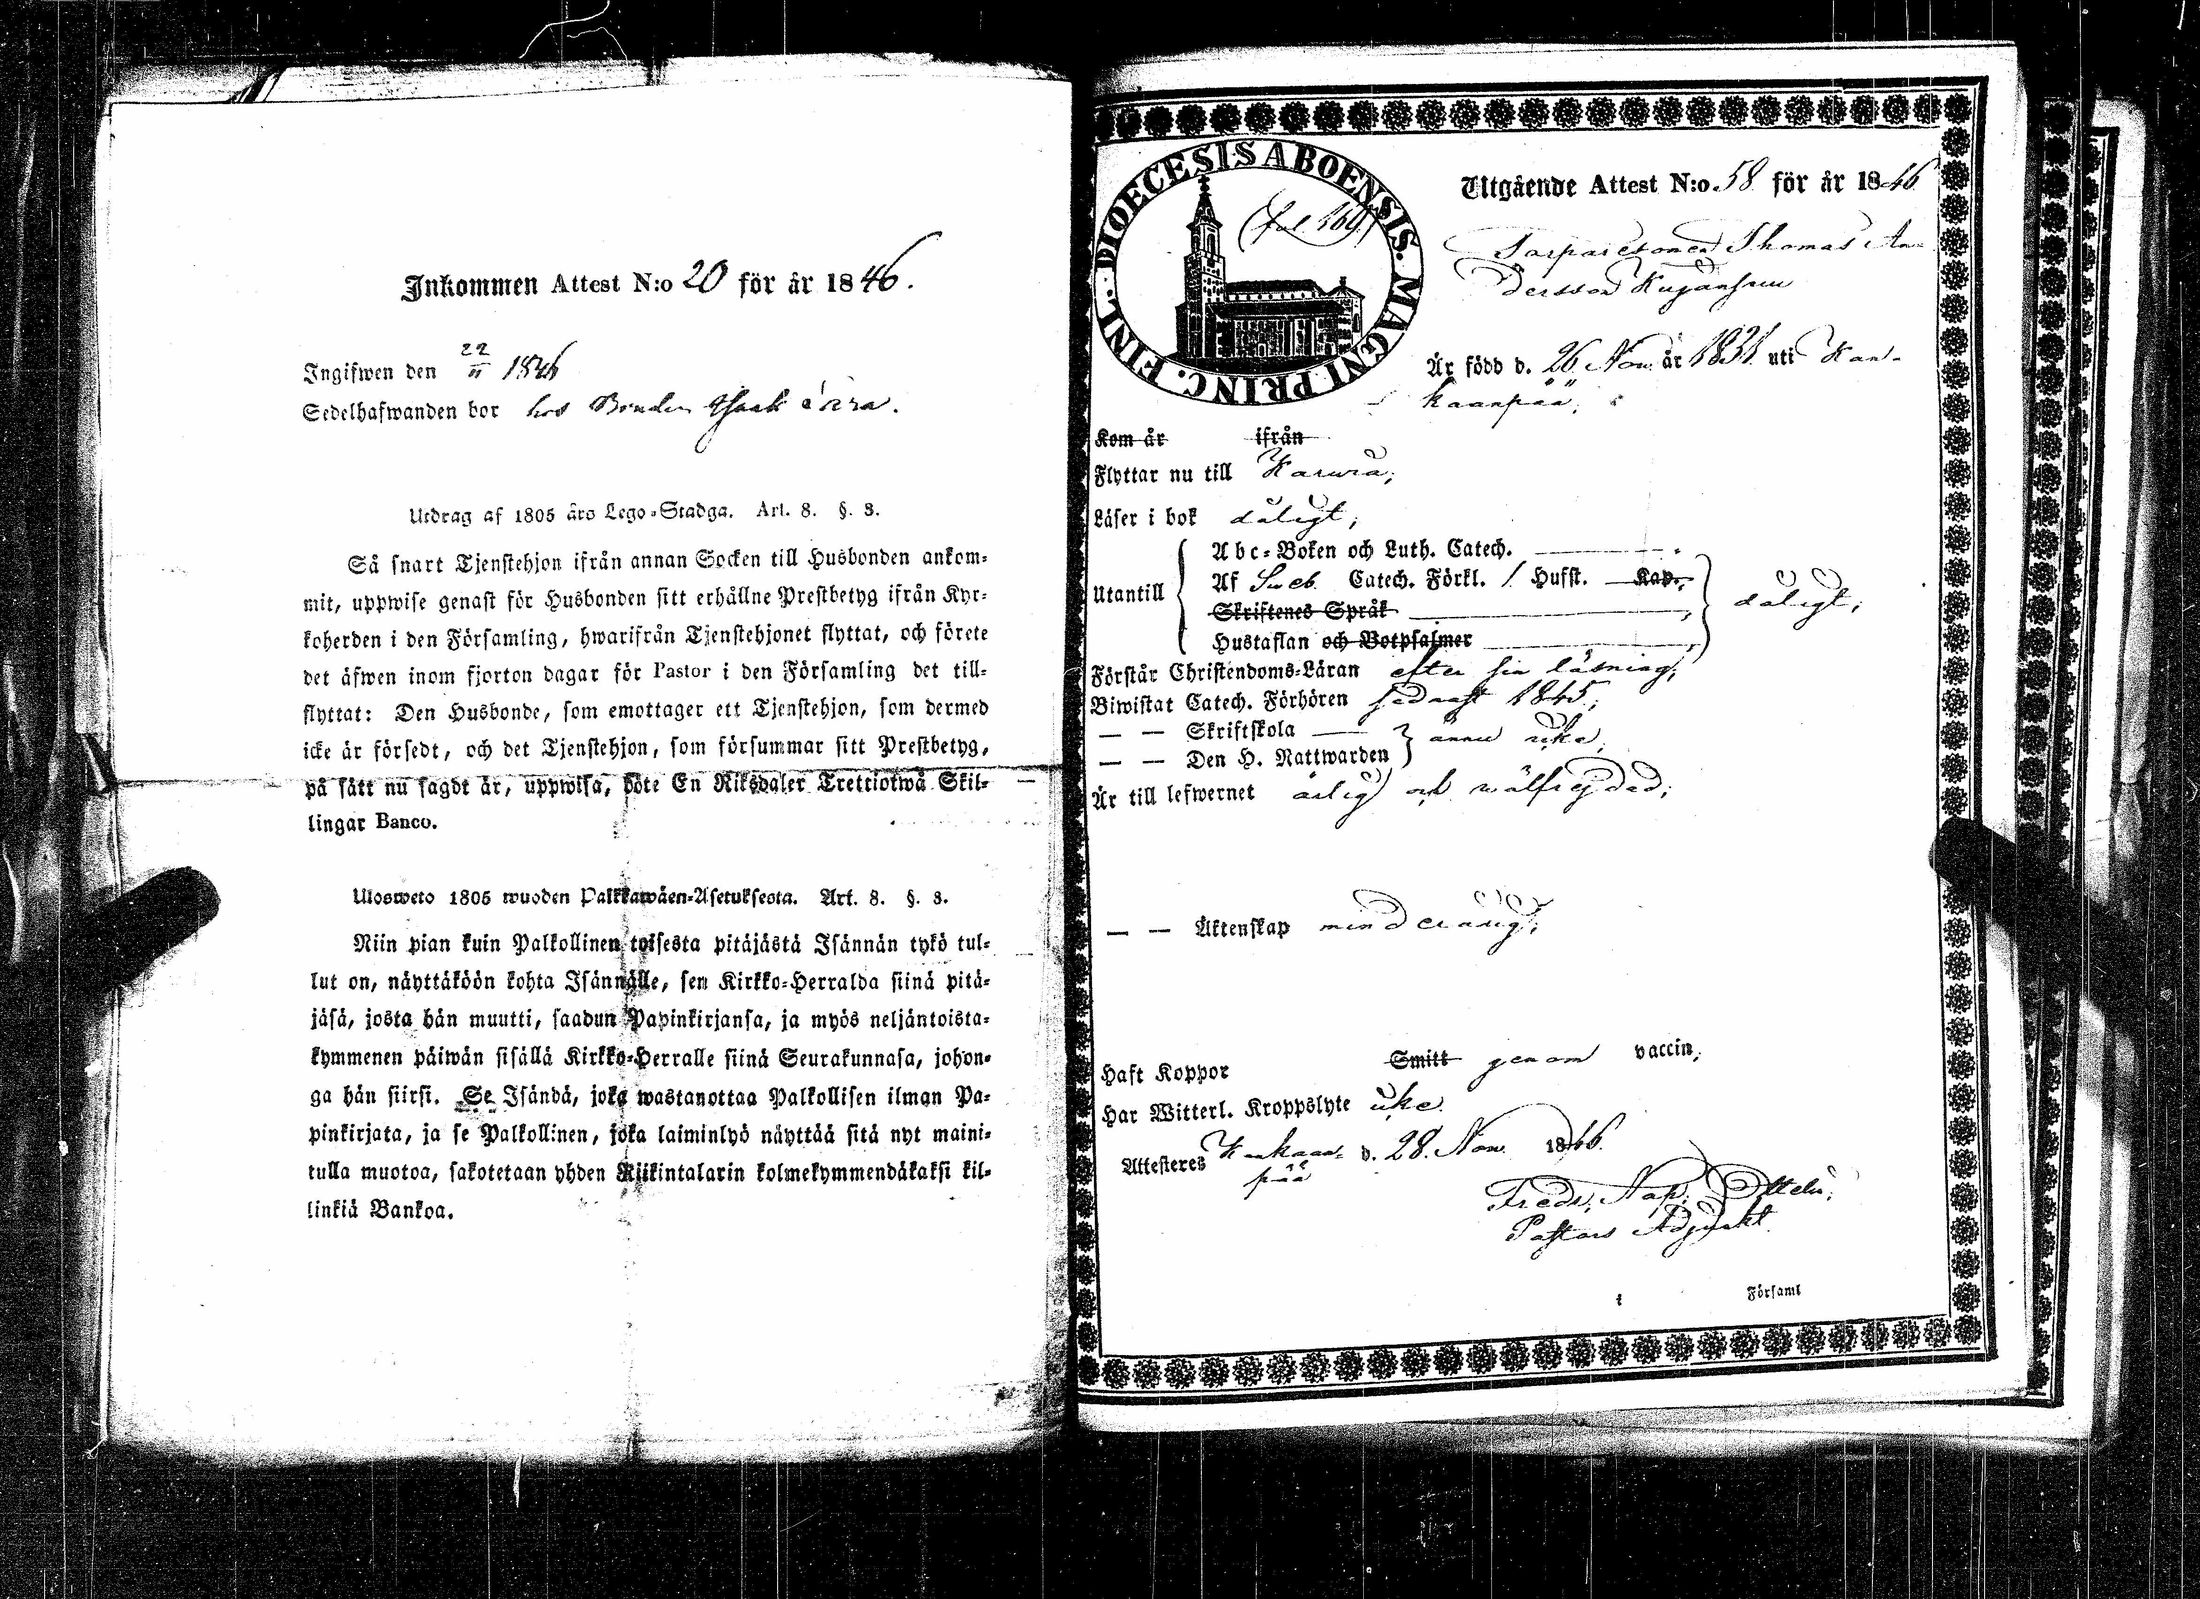 Inkommen Attest N:o 20 för år 1846.
Ingifwen den 22/11 1846
Sedelhafwanden bor hos Bonden Isaak
Utdrag af 1805 års Lego-Stadga. Art. 8. §. 3.
Så snart Tjenstehjon ifrån annan Socken till Husbonden ankom-
mit, uppwise genast för Husbonden sitt erhållne Prestbetyg ifrån Kyr-
koherden i den Församling, hwarifrån Tjenstehjonet flyttat, och förete
det äfwen inom fjorton dagar för Pastor i den Församling det till-
flyttat: Den Husbonde, som emottager ett Tjenstehjon, som dermed
icke är försedt, och det Tjenstehjon, som försummar sitt Prestbetyg,
på sätt nu sagdt är, uppwisa, böte En Riksdaler Trettiotwå Skil-
lingar Banco.
Ulosweto 1805 wuoden Palkkawäen-Asetuksesta. Art. 8. §. 3.
Niin pian kuin Palkollinen toisesta pitäjästä Isännän tykö tul-
lut on, näyttäköön kohta Isännälle, sen Kirkko-Herralda siinä pitä-
jäsä, josta hän muutti, saadun Papinkirjansa, ja myös neljäntoista-
kymmenen päiwän sisällä Kirkko-Herralle siinä Seurakunnasa, johon-
ga hän siirsi. Se Isändä, joka wastanottaa Palkollisen ilman Pa-
pinkirjata, ja se Palkollinen, joka laiminlyö näyttää sitä nyt maini-
tulla muotoa, sakotetaan yhden Riikintalarin kolmekymmendäkaksi kil-
linkiä Bankoa.
DIOECESIS ABOENSIS. MAGNI PRINC. FINL.
(fol. 160)
Utgående Attest N:o 58 för år 1846
Torparesonen Thomas An-
dersson
Är född d. 26 Nov. år 1831 uti Kan-
kaanpää;
Kom år ifrån
Flyttar nu till Karvia;
Läser i bok dåligt;
Abc-Boken och Luth. Catech.
Utantill Af Sveb. Catech. Förkl. / Husst. Kap. dåligt;
Skriftenes Språk
Hustaflan och Botpsalmer
Förstår Christendoms-Läran efter sin läsning;
Biwistat Catech. Förhören sednast 1845;
— — Skriftskola — ännu icke;
— — Den H. Nattwarden
Är till lefwernet ärlig och wälfrejdad;
— — Äktenskap minderårig;
Haft Koppor Smitt genom vaccin;
Har Witterl. Kroppslyte icke
Attesteres Kankaan- d. 28. Nov. 1846.
pää
Fredr. Nap.
Pastors Adjunkt.
i Församl